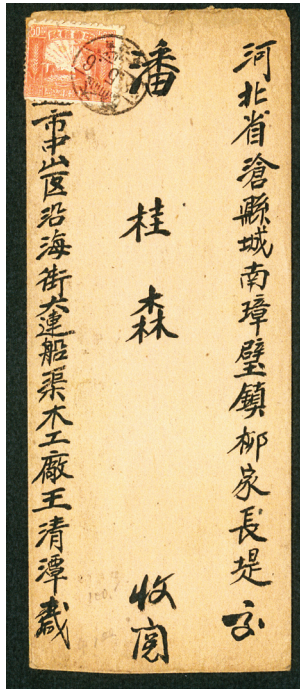 河北省滄縣城南璋璧鎮柳家長堤交
潘桂森 收啓
市中山区沿海街大連船渠木工廠王清潭緘
50